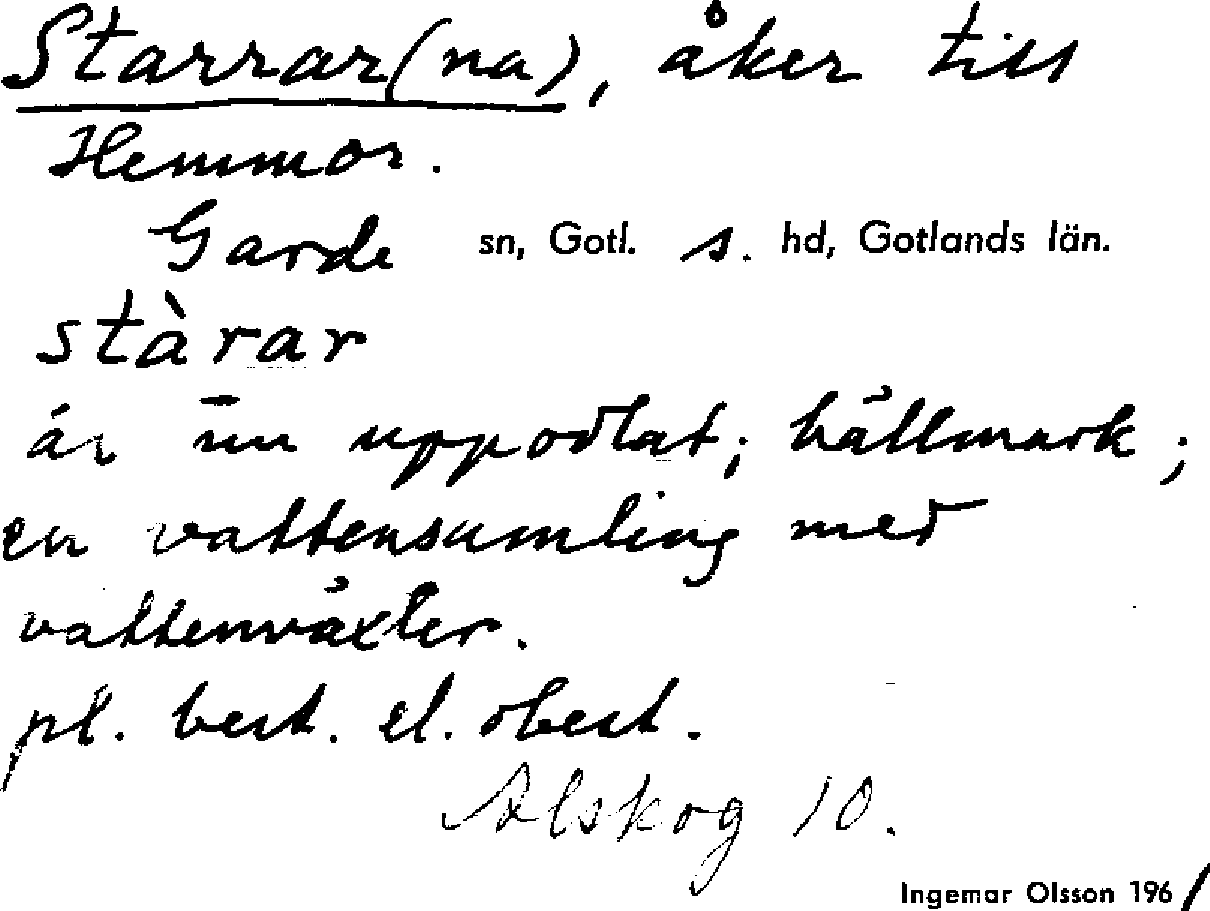 Starrar(na), åker till
Hemmor.
Garde sn, Gotl. s. hd, Gotlands län.
stàrar
är nu uppodlat; hällmark;
en vattensamling med
vattenväxter.
pl. best. el. obest.
Alskog 10.
Ingemar Olsson 1961